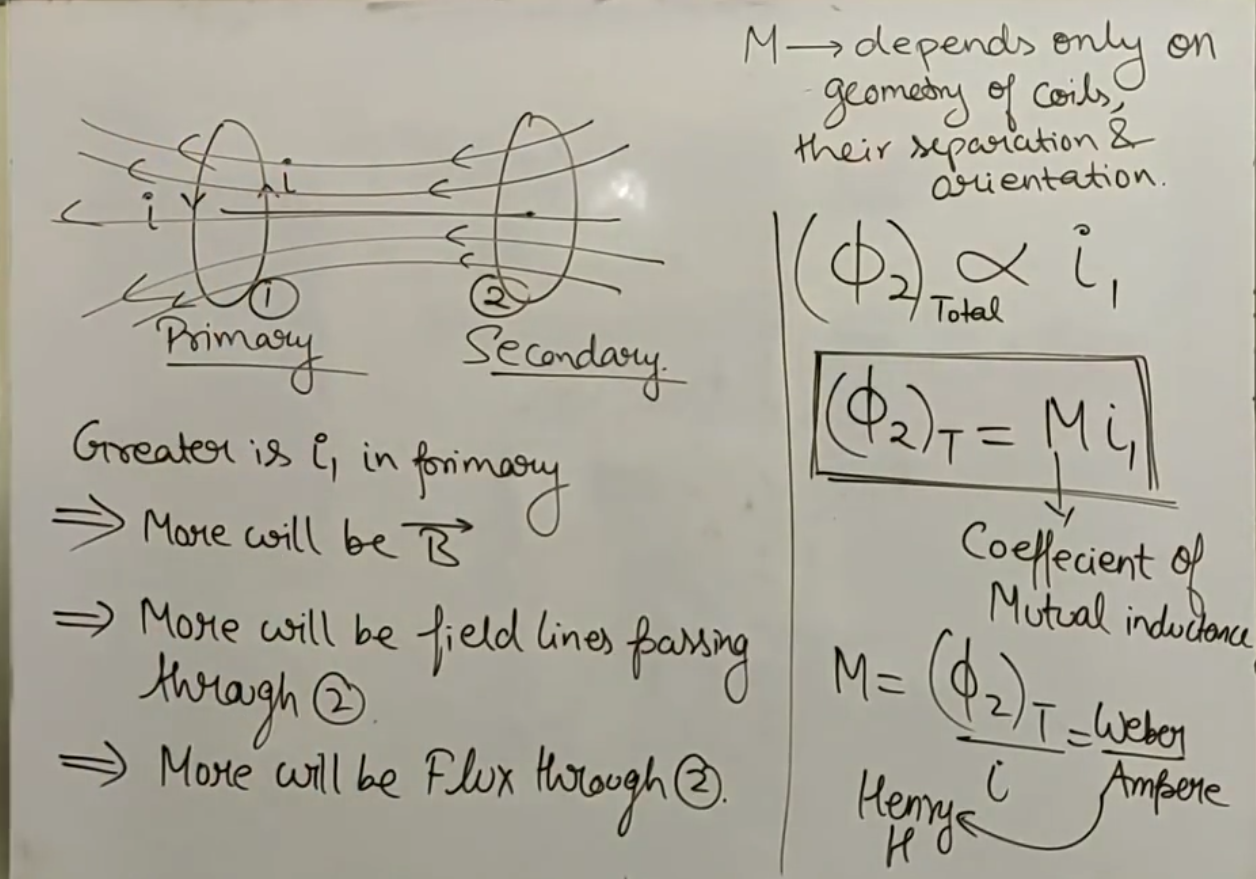 i
i
①
②
Primary
Secondary.
Greater is i₁ in primary
⇒ More will be B⃗
⇒ More will be field lines passing
through ②.
⇒ More will be Flux through ②.
M → depends only on
geometry of coils,
their separation &
orientation.
(ϕ₂)Total ∝ i₁
(ϕ₂)T = M i₁
Coeffecient of
Mutual inductance
M = (ϕ₂)T / i = Weber / Ampere
Henry
H